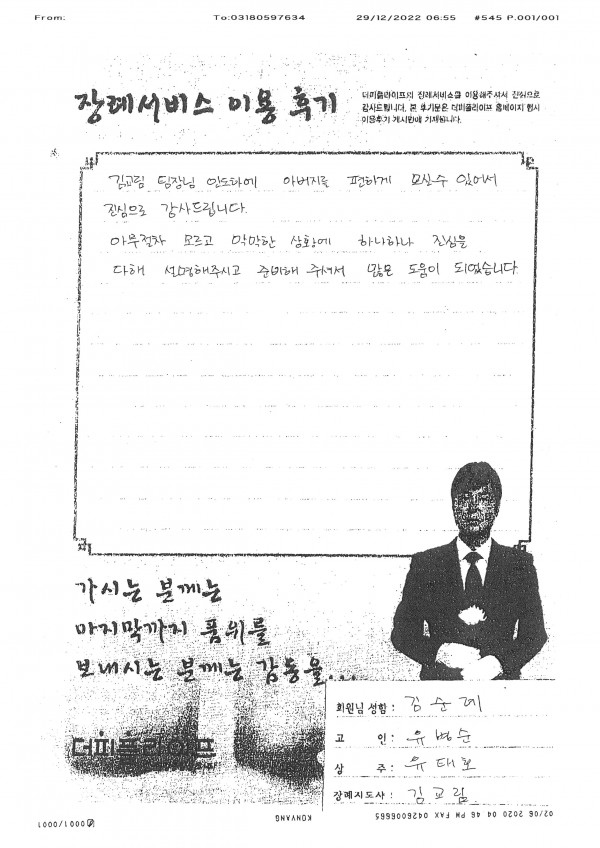 From: To:03180597634 29/12/2022 06:55 #545 P.001/001
장례서비스 이용 후기
더피플라이프의 장례서비스를 이용해주셔서 진심으로
감사드립니다. 본 후기문은 더피플라이프 홈페이지 행사
이용후기 게시판에 기재됩니다.
김교림 팀장님 인도하에 아버지를 편하게 모실수 있어서
진심으로 감사드립니다.
아무절차 모르고 막막한 상황에 하나하나 진심을
다해 설명해주시고 준비해 주셔서 많은 도움이 되었습니다
가시는 분께는
마지막까지 품위를
보내시는 분께는 감동을...
더피플라이프
회원님 성함 : 김순례
고 인 : 유병순
상 주 : 유태호
장례지도사 : 김교림
02/06 2020 04:46 PM FAX 0426006665 KONYANG 0001/0001